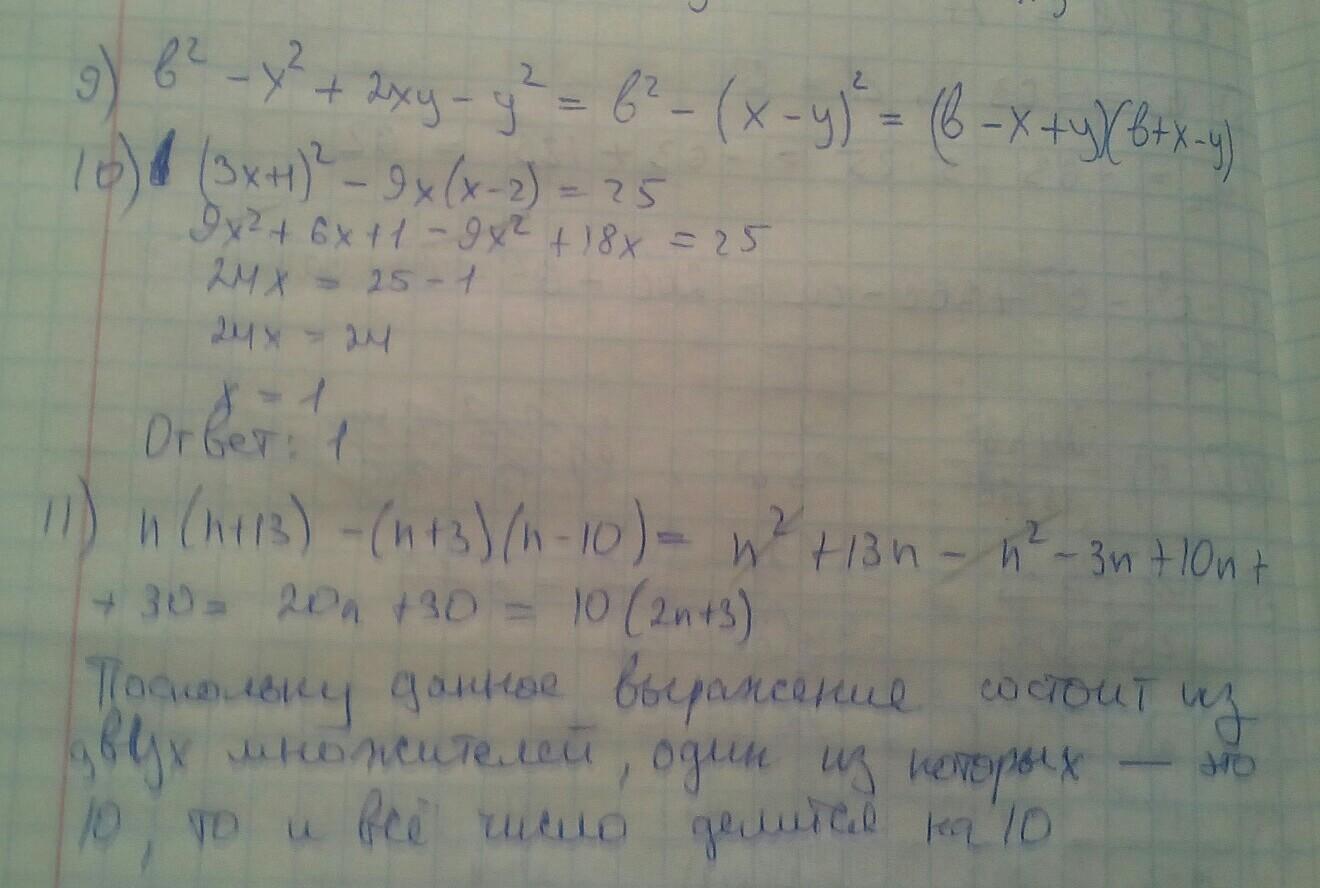 9) в² - x² + 2xy - y² = в² - (x - y)² = (в - x + y)(в + x - y)
10) (3x+1)² - 9x(x-2) = 25
9x² + 6x + 1 - 9x² + 18x = 25
24x = 25 - 1
24x = 24
x = 1
Ответ: 1
11) n(n+13) - (n+3)(n-10) = n² + 13n - n² - 3n + 10n +
+ 30 = 20n + 30 = 10(2n+3)
Поскольку данное выражение состоит из
двух множителей, один из которых — это
10, то и всё число делится на 10